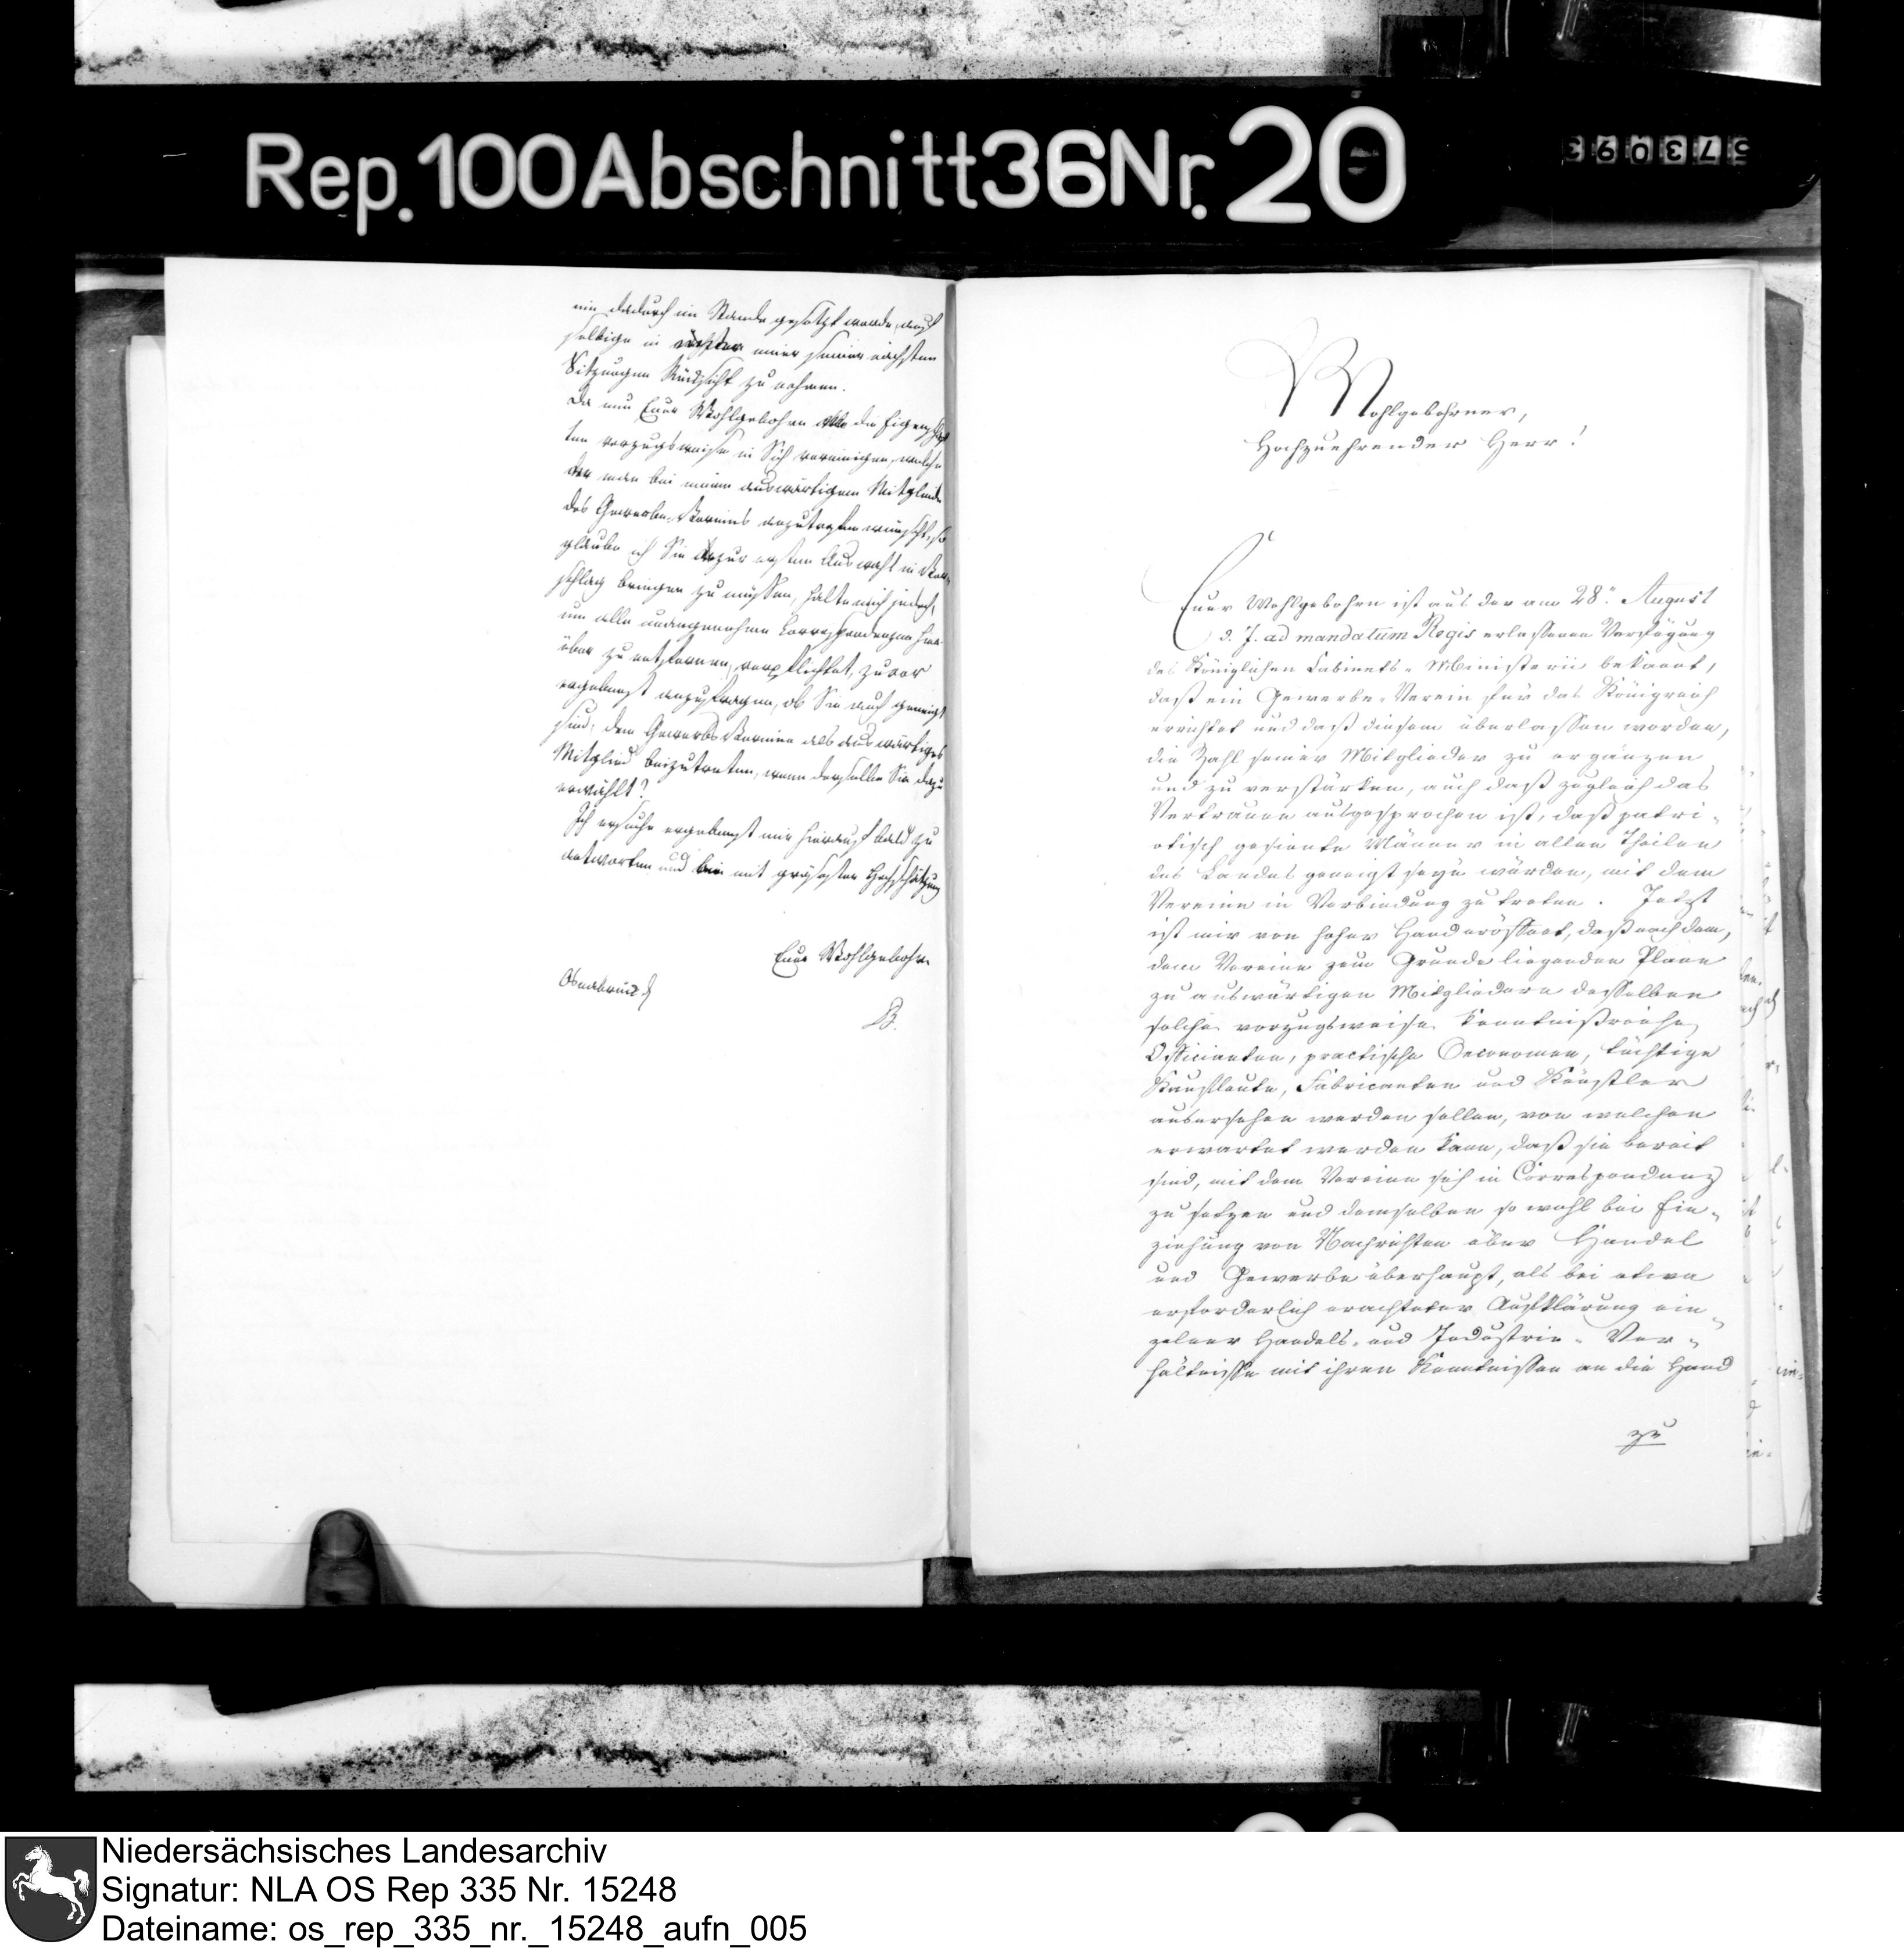 Rep. 100 Abschnitt 36 Nr. 20
573093
ein dadurch im Stande gesetzt werde, auf
selbige in einer seiner nächsten
Sitzungen Rücksicht zu nehmen.
Da nun Euer Wohlgebohren alle die Eigenschaf
ten vorzugsweise in Sich vereinigen, welche
man bei einem auswärtigen Mitgliede
des Gewerbe-Vereins anzutreffen wünscht, so
glaube ich Sie zur ersten Auswahl in Vor-
schlag bringen zu müssen, halte mich jedoch,
um alle unangenehme Correspondenzen hier-
über zu entfernen, verpflichtet, zuvor
ergebenst anzufragen, ob Sie auch geneigt
sind, dem Gewerbe Vereine als auswärtiges
Mitglied beizutreten, wenn derselbe Sie dazu
erwählt?
Ich ersuche ergebenst mir hierauf bald zu
antworten und bin mit größester Hochschätzung
Euer Wohlgebohren
Osnabrück
B.
Wohlgebohrner,
Hochzuehrender Herr!
Euer Wohlgebohren ist aus der am 28n August
d. J. ad mandatum Regis erlassenen Verfügung
des Königlichen Cabinets-Ministerii bekannt,
daß ein Gewerbe-Verein für das Königreich
errichtet und daß diesem überlassen worden,
die Zahl seiner Mitglieder zu ergänzen
und zu verstärken, auch daß zugleich das
Vertrauen ausgesprochen ist, daß patri-
otisch gesinnte Männer in allen Theilen
des Landes geneigt seyn würden, mit dem
Vereine in Verbindung zu treten. Jetzt
ist mir von hoher Hand eröffnet, daß nach dem,
dem Vereine zum Grunde liegenden Plane
zu auswärtigen Mitgliedern desselben
solche vorzugsweise kenntnißreiche
Officianten, practische Oeconomen, tüchtige
Kaufleute, Fabricanten und Künstler
ausersehen werden sollen, von welchen
erwartet werden kann, daß sie bereit
sind, mit dem Vereine sich in Correspondenz
zu setzen und demselben so wohl bei Ein-
ziehung von Nachrichten über Handel
und Gewerbe überhaupt, als bei etwa
erforderlich erachteter Aufklärung ein-
zelner Handels- und Industrie-Ver-
hältnisse mit ihren Kenntnissen an die Hand
zu
Niedersächsisches Landesarchiv
Signatur: NLA OS Rep 335 Nr. 15248
Dateiname: os_rep_335_nr._15248_aufn_005